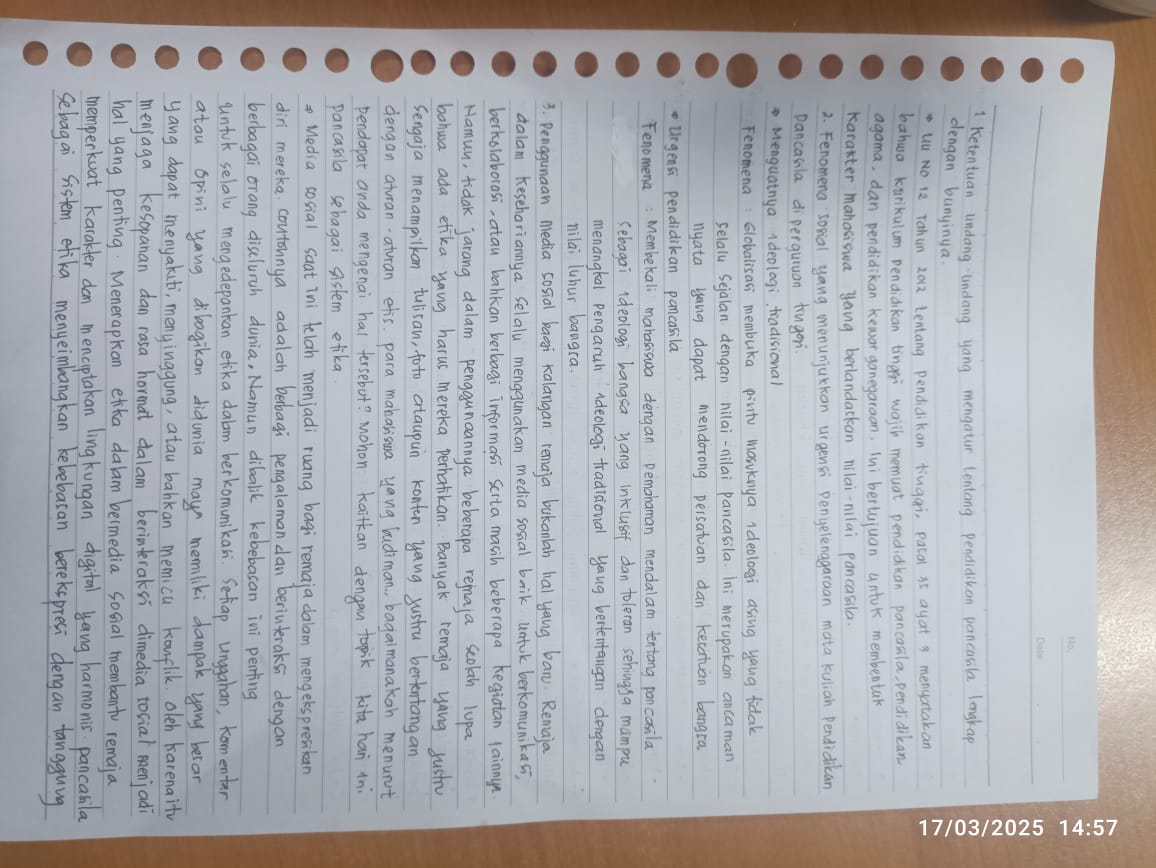 No.
Date
17/03/2025 14:57
1 Ketentuan undang-undang yang mengatur tentang pendidikan pancasila lengkap
dengan bunyinya.
UU NO 12 Tahun 2012 tentang pendidikan tinggi, pasal 35 ayat 3 menyatakan
bahwa kurikulum pendidikan tinggi wajib memuat pendidikan pancasila, pendidikan
agama, dan pendidikan kewarganegaraan. Ini bertujuan untuk membentuk
karakter mahasiswa yang berlandaskan nilai-nilai pancasila.
2. Fenomena sosial yang menunjukkan urgensi penyelenggaraan mata kuliah pendidikan
pancasila di perguruan tinggi.
Menguatnya ideologi tradisional
Fenomena : Globalisasi membuka pintu masuknya ideologi asing yang tidak
selalu sejalan dengan nilai-nilai pancasila. Ini merupakan ancaman
nyata yang dapat mendorong persatuan dan kesatuan bangsa
Urgensi pendidikan pancasila
Fenomena : Membekali mahasiswa dengan pemahaman mendalam tentang pancasila
sebagai ideologi bangsa yang inklusif dan toleran sehingga mampu
menangkal pengaruh ideologi tradisional yang bertentangan dengan
nilai luhur bangsa.
3. Penggunaan media sosial bagi kalangan remaja bukanlah hal yang baru. Remaja
dalam kesehariannya selalu menggunakan media sosial baik untuk berkomunikasi,
berkolaborasi, atau bahkan berbagi informasi serta masih beberapa kegiatan lainnya.
Namun, tidak jarang dalam penggunaannya beberapa remaja seolah lupa
bahwa ada etika yang harus mereka perhatikan. Banyak remaja yang justru
sengaja menampilkan tulisan, foto ataupun konten yang justru bertentangan
dengan aturan-aturan etis. para mahasiswa yang budiman, bagaimanakah menurut
pendapat anda mengenai hal tersebut? Mohon kaitkan dengan topik kita hari ini
pancasila sebagai sistem etika.
⇒ Media sosial saat ini telah menjadi ruang bagi remaja dalam mengekspresikan
diri mereka. contohnya adalah berbagi pengalaman dan berinteraksi dengan
berbagai orang diseluruh dunia. Namun dibalik kebebasan ini penting
untuk selalu mengedepankan etika dalam berkomunikasi. Setiap unggahan, komentar
atau opini yang dibagikan didunia maya memiliki dampak yang besar
yang dapat menyakiti, menyinggung, atau bahkan memicu konflik. Oleh karena itu
menjaga kesopanan dan rasa hormat dalam berinteraksi dimedia sosial menjadi
hal yang penting. Menerapkan etika dalam bermedia sosial membantu remaja
memperkuat karakter dan menciptakan lingkungan digital yang harmonis. pancasila
sebagai sistem etika menyeimbangkan kebebasan berekspresi dengan tanggung